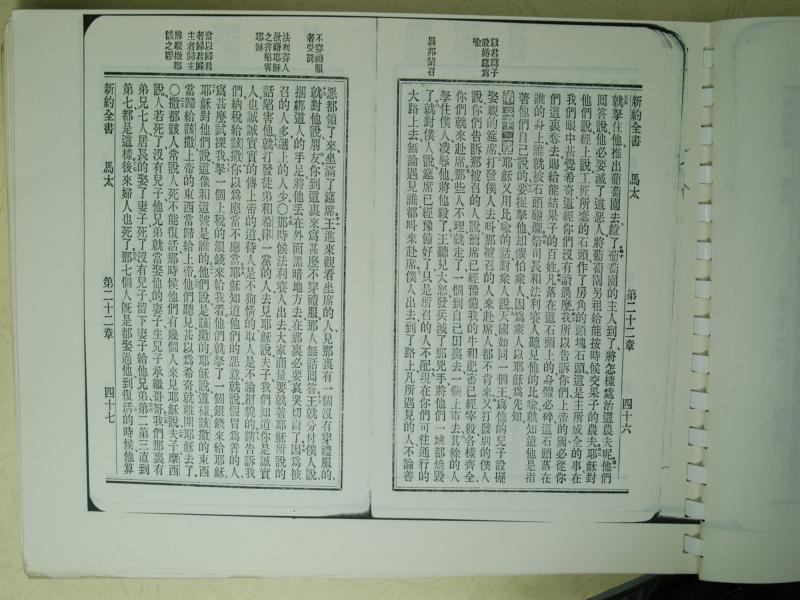 新約全書 馬太 第二十二章 四十六
就拏住他推出葡萄園去殺了葡萄園的主人到了將怎樣處治這農夫呢他們
回答說他必要滅了這惡人將葡萄園另租給能按時候交果子的農夫耶穌對
他們說經上說工匠所棄的石頭作了房角的頭塊石頭這是主所成全的事在
我們眼中甚覺希奇這經你們沒有讀過麼我所以告訴你們上帝的國必從你
們這裏奪去賜給能結果子的百姓凡落在這石頭上的身體必碎這石頭落在
誰的身上誰就被石頭砸爛祭司長和法利賽人聽見他的比喻就知道他是指
著他們自己說的要捉拏他却懼怕衆人因爲衆人以耶穌爲先知
耶穌又用比喻的話對衆人說天國如同一個王爲他的兒子設擺
娶親的筵席打發僕人去叫那被召的人來赴席人都不肯來又打發別的僕人
說你們告訴那被召的人說酒席已經豫備我的牛和肥畜已經宰殺各樣齊全
你們就來赴席那些人不理就走了一個到自己田裏去一個上市去其餘的人
拏住僕人凌辱他將他殺了王聽見大怒發兵滅了那兇手將他們一城都燒毀
了就對僕人說筵席已經豫備好了只是所召的人不配現在你們可往通行的
大路上去無論遇見誰都叫來赴席僕人出去到了路上凡所遇見的人不論善
以君爲子設婚筵爲喻
異邦蒙召
惡都領了來坐滿了筵席王進來觀看坐席的人見那裏有一個沒有穿禮服的
就對他說朋友你到這裏來爲甚麼不穿禮服那人無話回答王就分付僕人說
捆綁這人的手足將他丟在外面黑暗地方去在那裏必要哀哭切齒了因爲被
召的人多選上的人少〇那時候法利賽人出去大家商量要就著耶穌所說的
話陷害他就打發徒弟和希律一黨的人去見耶穌說夫子我們知道你是誠實
人也誠誠實實的傳上帝的道待人是不徇情的取人是不論相貌的請告訴我
們納稅給該撒你以爲應當不應當耶穌知道他們的惡意就說假冒爲善的人
爲甚麼試探我拏一個上稅的銀錢來給我看他們就拏了一個銀錢來給耶穌
耶穌對他們說這像和這號是誰的他們說是該撒的耶穌說這樣該撒的東西
當歸給該撒上帝的東西當歸給上帝他們聽見甚以爲希奇就離開耶穌去了
〇撒都該人常說人死不能復活那時候他們有幾個人來見耶穌說夫子摩西
說人若死了沒有兒子他兄弟就當娶他的妻子生兒子承繼哥哥我們那裏有
弟兄七人居長的娶了妻子死了沒有兒子留下妻子給他兄弟第二第三直到
第七都是這樣後來婦人也死了那七個人旣是都娶過他到復活的時候他算
新約全書 馬太 第二十二章 四十七
不穿禮服者受罰
法利賽人設籌耶穌之言陷害耶穌